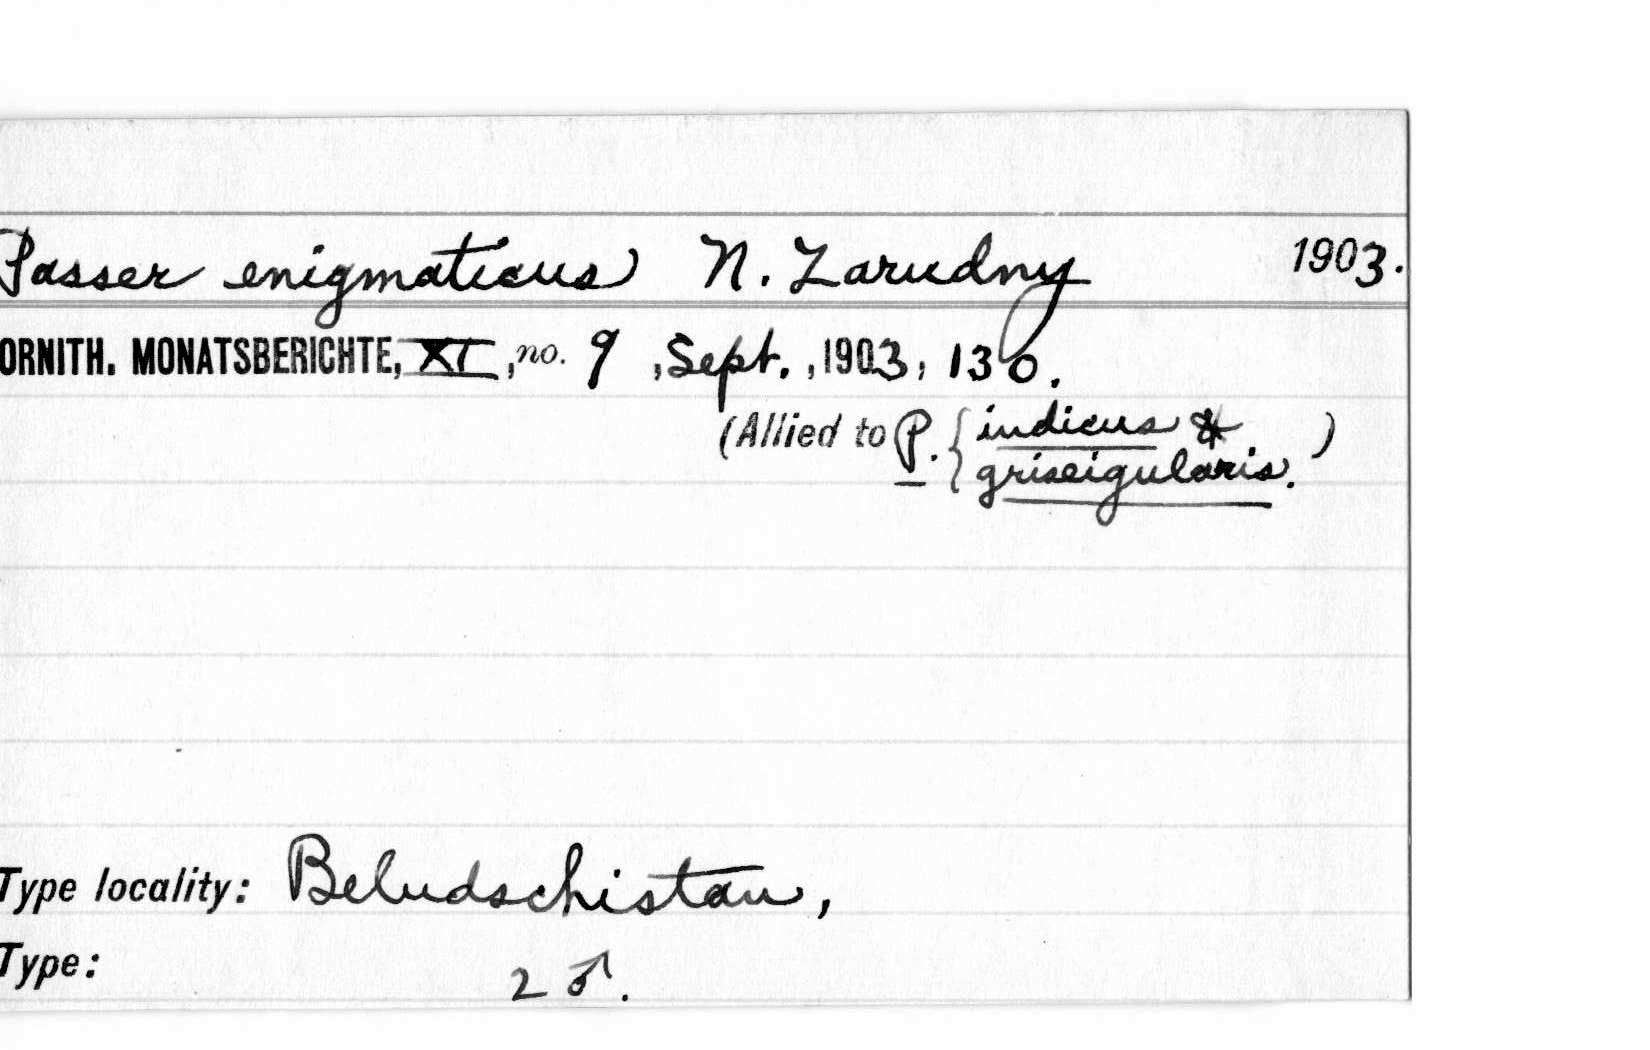 Passer enigmaticus N. Zarudny 1903.
ORNITH. MONATSBERICHTE, XI, no. 9, Sept., 1903, 130.
(Allied to P. { indicus &
griseigularis. )
Type locality: Beludschistan,
Type: 2 ♂.